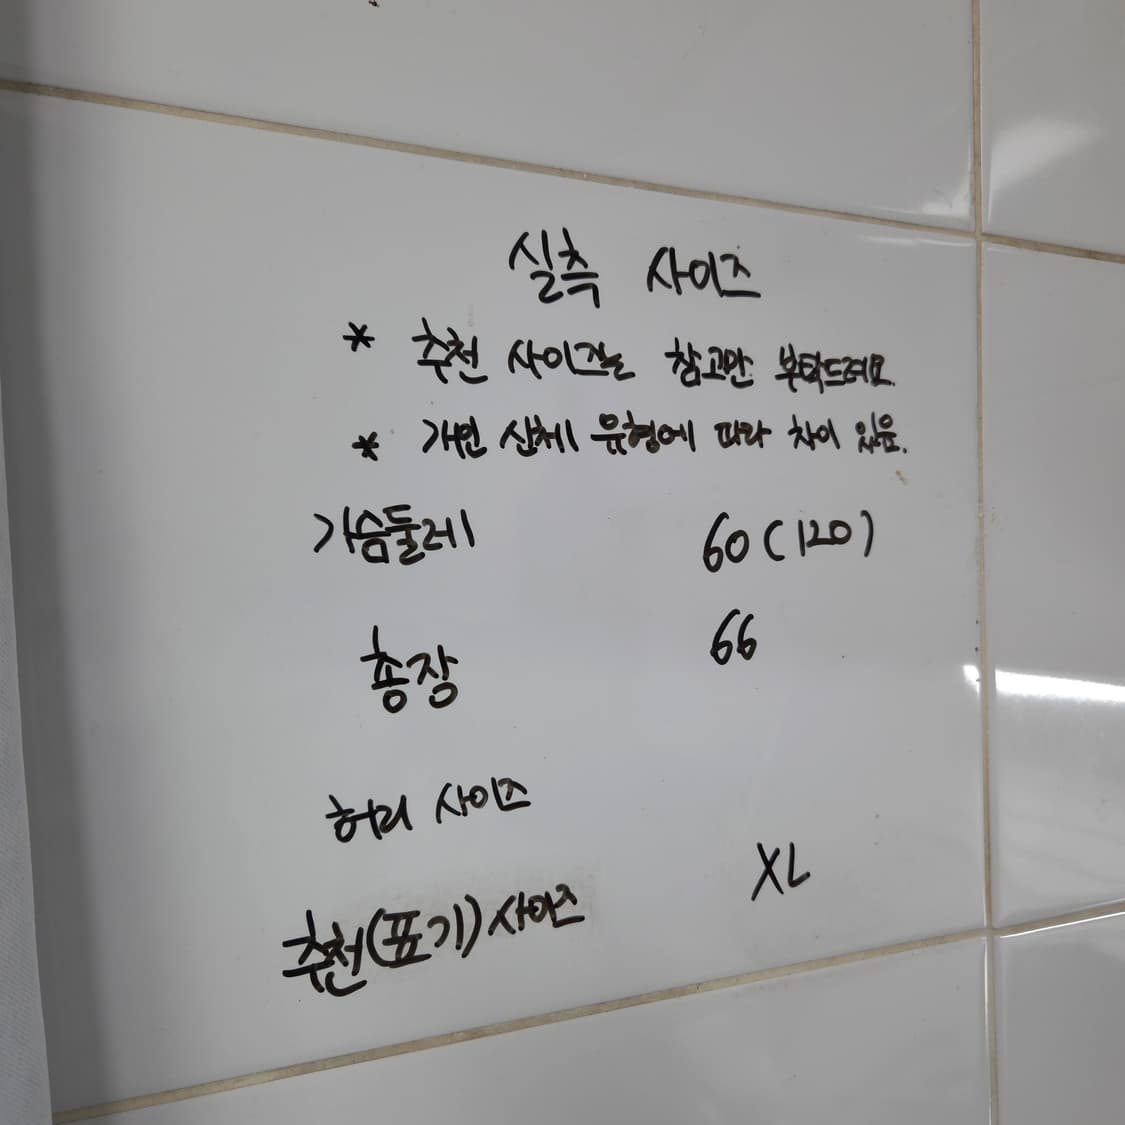 실측 사이즈
* 추천 사이즈는 참고만 부탁드려요.
* 개인 신체 유형에 따라 차이 있음.
가슴둘레 60(120)
총장 66
허리 사이즈
추천(표기)사이즈 XL